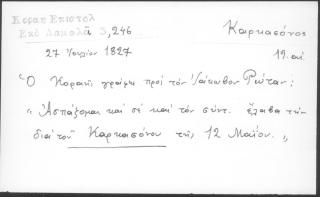 Κοραη Επιστολ
Εκδ Δαμαλᾶ 3,246
Καρκασόνος
27 Ἰουλίου 1827
19. αἰ.
Ὁ Κοραῆς γράφει πρὸς τὸν Ἰάκωβον Ρώταν:
"Ἀσπάζομαι καὶ σὲ καὶ τὸν σύντ. ἔλαβα τὴν
διὰ τοῦ Καρκασόνου τῆς 12 Μαΐου.„